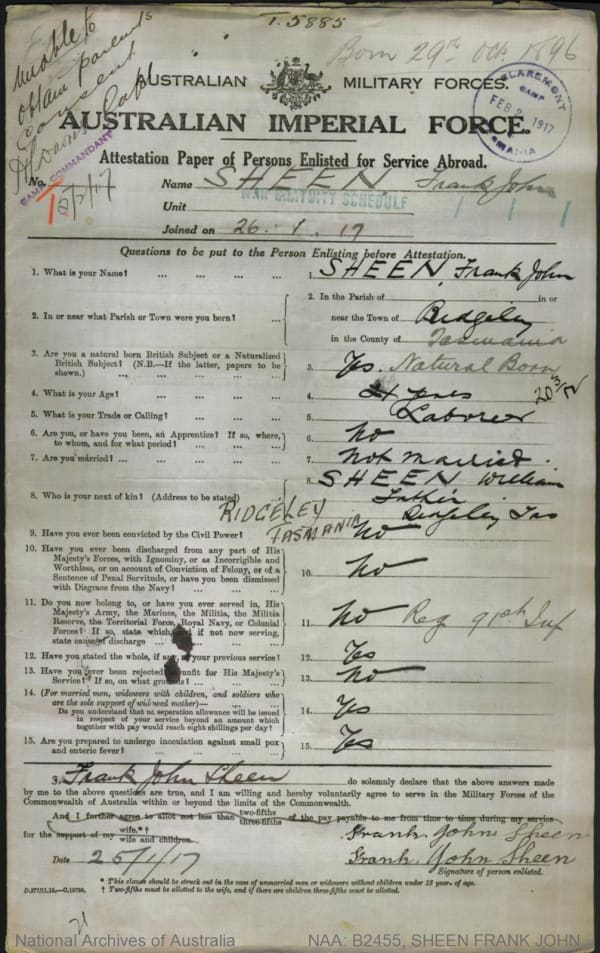 T. 5885
Born 29th Oct. 1896
Unable to
obtain parents
Consent
Capt
CAMP COMMANDANT
15/2/17
AUSTRALIAN MILITARY FORCES.
CLAREMONT
CAMP
FEB 2 1917
TASMANIA
AUSTRALIAN IMPERIAL FORCE.
Attestation Paper of Persons Enlisted for Service Abroad.
No.
Name SHEEN, Frank John
WAR GRATUITY SCHEDULE
Unit
Joined on 26.1.17
Questions to be put to the Person Enlisting before Attestation.
1. What is your Name? ... ... ... ... 1. SHEEN, Frank John
2. In or near what Parish or Town were you born? ...
2. In the Parish of in or
near the Town of Ridgeley
in the County of Tasmania
3. Are you a natural born British Subject or a Naturalized
British Subject? (N.B.—If the latter, papers to be
shown.) ... ... ... ... ...
3. Yes. Natural Born
4. What is your Age? ... ... ... ... 4. 21 yrs
20 3/12
5. What is your Trade or Calling? ... ... ... 5. Laborer
6. Are you, or have you been, an Apprentice? If so, where,
to whom, and for what period? ... ... ...
6. No
7. Are you married? ... ... ... ... 7. Not Married.
8. Who is your next of kin? (Address to be stated)
8. SHEEN William
Father
Ridgeley Tas
RIDGELEY
TASMANIA
9. Have you ever been convicted by the Civil Power? No
10. Have you ever been discharged from any part of His
Majesty's Forces, with Ignominy, or as Incorrigible and
Worthless, or on account of Conviction of Felony, or of a
Sentence of Penal Servitude, or have you been dismissed
with Disgrace from the Navy? ... ... ...
10. No
11. Do you now belong to, or have you ever served in, His
Majesty's Army, the Marines, the Militia, the Militia
Reserve, the Territorial Force, Royal Navy, or Colonial
Forces? If so, state which, and if not now serving,
state cause of discharge ... ... ...
11. No Reg 91st Inf
12. Have you stated the whole, if any, of your previous service? 12. Yes
13. Have you ever been rejected as unfit for His Majesty's
Service? If so, on what grounds? ... ...
13. No
14. (For married men, widowers with children, and soldiers who
are the sole support of widowed mother)—
Do you understand that no separation allowance will be issued
in respect of your service beyond an amount which
together with pay would reach eight shillings per day?
14. Yes
15. Are you prepared to undergo inoculation against small pox
and enteric fever? ... ... ... ...
15. Yes
I, Frank John Sheen do solemnly declare that the above answers made
by me to the above questions are true, and I am willing and hereby voluntarily agree to serve in the Military Forces of the
Commonwealth of Australia within or beyond the limits of the Commonwealth.
And I further agree to allot not less than two-fifths three-fifths of the pay payable to me from time to time during my service
for the support of my wife.*† wife and children.
Frank. John Sheen
Date 25/1/17
Frank. John Sheen
Signature of person enlisted.
* This clause should be struck out in the case of unmarried men or widowers without children under 18 year. of age.
† Two-fifths must be allotted to the wife, and if there are children three-fifths must be allotted.
21
National Archives of Australia
NAA: B2455, SHEEN FRANK JOHN